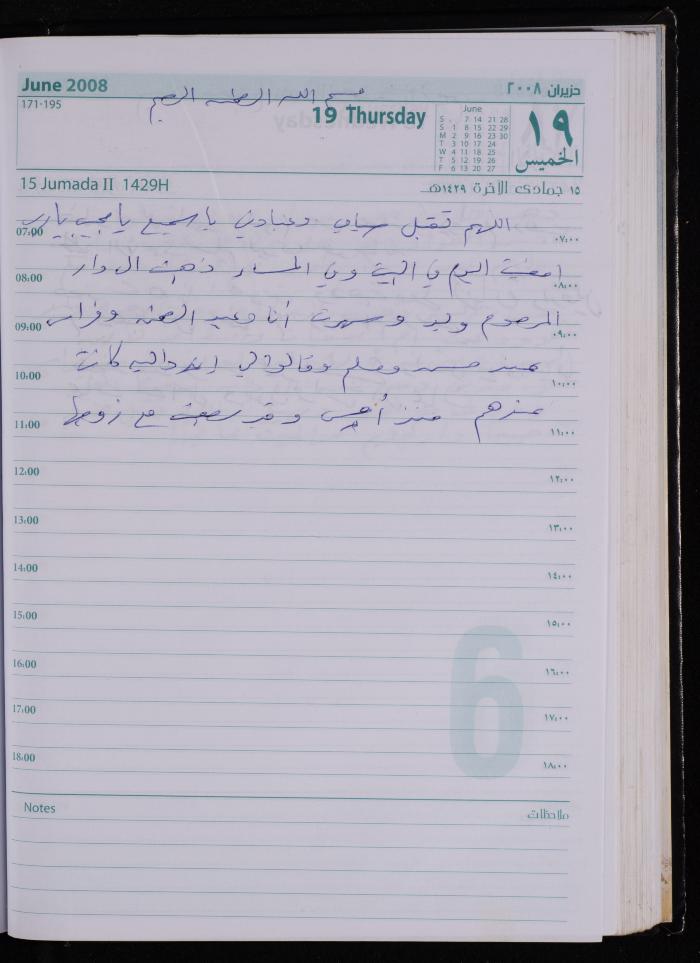 June 2008
حزيران ٢٠٠٨
بسم الله الرحمن الرحيم
171-195
19 Thursday
June
S 7 14 21 28
S 1 8 15 22 29
M 2 9 16 23 30
T 3 10 17 24
W 4 11 18 25
T 5 12 19 26
F 6 13 20 27
١٩
الخميس
15 Jumada II 1429H
١٥ جمادى الآخرة ١٤٢٩هـ
اللهم تقبل صيامي وعبادتي يا سميع يا مجيب يا رب
07:00
٠٧:٠٠
امضيت اليوم في البيت وفي المساء ذهبت الى دار
08:00
٠٨:٠٠
المرحوم وليد وسهرت أنا وعبد
09:00
٠٩:٠٠
عند وقالوا لي كانت
10:00
١٠:٠٠
عندهم منذ أمس وقد مع زوجها
11:00
١١:٠٠
12:00
١٢:٠٠
13:00
١٣:٠٠
14:00
١٤:٠٠
15:00
١٥:٠٠
16:00
١٦:٠٠
17:00
١٧:٠٠
18:00
١٨:٠٠
6
Notes
ملاحظات